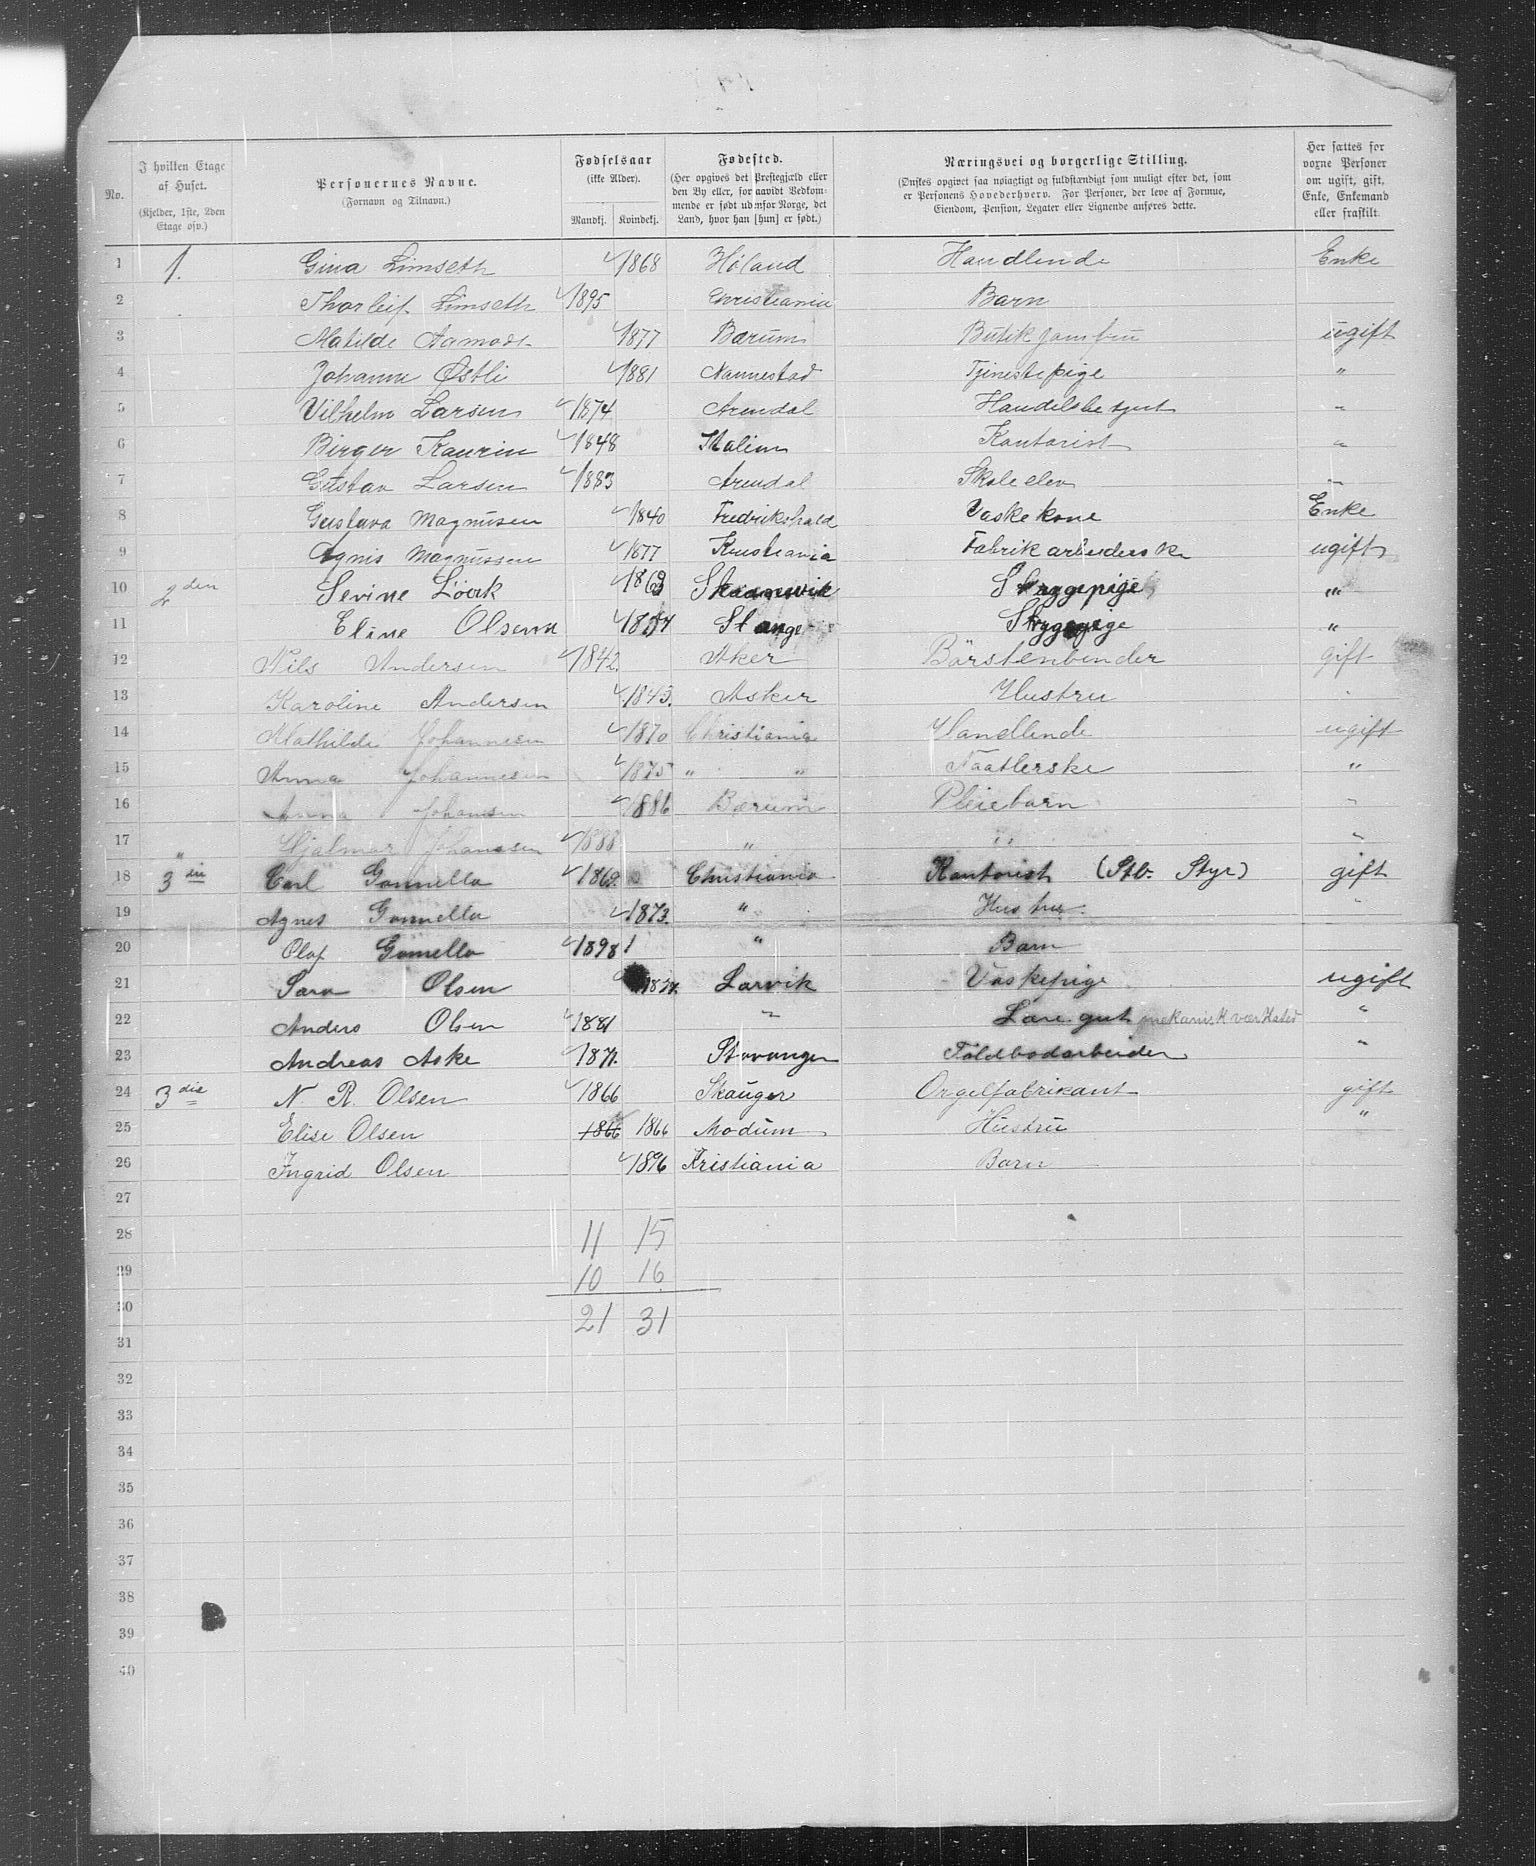 No. | I hvilken Etage af Huset. (Kjelder, 1ste, 2den Etage osv.) | Personernes Navne. (Fornavn og Tilnavn.) | Fødselsaar (ikke Alder). Mandkj. | Kvindekj. | Fødested. (Her opgives det Prestegjæld eller den By eller, for saavidt Vedkommende er født udenfor Norge, det Land, hvor han [hun] er født.) | Næringsvei og borgerlige Stilling. (Ønskes opgivet saa nøiagtigt og fuldstændigt som muligt efter det, som er Personens Hovederhverv. For Personer, der leve af Formue, Eiendom, Pension, Legater eller Lignende anføres dette. | Her sættes for voxne Personer om ugift, gift, Enke, Enkemand eller fraskilt.
1 | 1. | Gina Limseth | | 1868 | Høland | Handlende | Enke
2 | Thorleif Limseth | 1895 | | Christiania | Barn
3 | Matilde Aamodt | | 1877 | Bærum | Butikjomfru | ugift
4 | Johanne Østli | | 1881 | Nannestad | Tjenestepige | "
5 | Vilhelm Larsen | 1874 | | Arendal | Handelsbetjent | "
6 | Birger Kaurin | 1848 | | Italien | Kontorist | "
7 | Gustav Larsen | 1883 | | Arendal | Skoleelev | "
8 | Gustava Magnusen | | 1840 | Fredrikshald | Vaskekone | Enke
9 | Agnis Magnussen | | 1877 | Kristiania | Fabrikarbeiderske | ugift
10 | 2den | Sevine | | 186 | | | "
11 | Eline Olsenn | | 18 | Stange | Sypige | "
12 | Nils Andersen | 1842. | | Aker | Börstenbinder | gift
13 | Karoline Andersen | | 1843. | Asker | Hustru | "
14 | Mathilde Johannesen | | 1870 | Christiania | Handlende | ugift
15 | Anna Johannesen | | 1875 | " " | Naatlerske | "
16 | Anna Johansen | | 1886 | Bærum | Pleiebarn | "
17 | Hjalmar Johanesen | 1888 | | " | " | "
18 | 3die | Carl Gonnella | 1869. | | Christiania | Kontorist (Stb. Styr) | gift
19 | Agnes Gonnella | | 1873. | " | Hustru | "
20 | Olaf Gonnella | 1898 | | " | Barn
21 | Sara Olsen | | 187 | Larvik | Vaskepige | ugift
22 | Anders Olsen | 1881 | | " | Læregut mekanisk værksted | "
23 | Andreas Aske | 1871. | | Stavanger | Toldbodarbeider | "
24 | 3die | N R. Olsen | 1866 | | Skauger | Orgelfabrikant | gift
25 | Elise Olsen | 1866 | 1866 | Modum | Hustru | "
26 | Ingrid Olsen | | 1896 | Kristiania | Barn
27
28 | 11 | 15
29 | 10 | 16
30
21 | 31
31
32
33
34
35
36
37
38
39
40